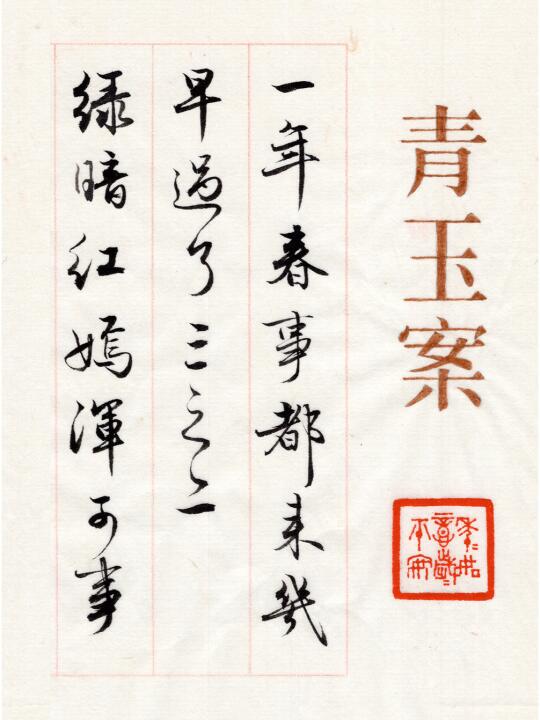 青玉案
一年春事都来幾
早過了三之二
绿暗红嫣渾可事